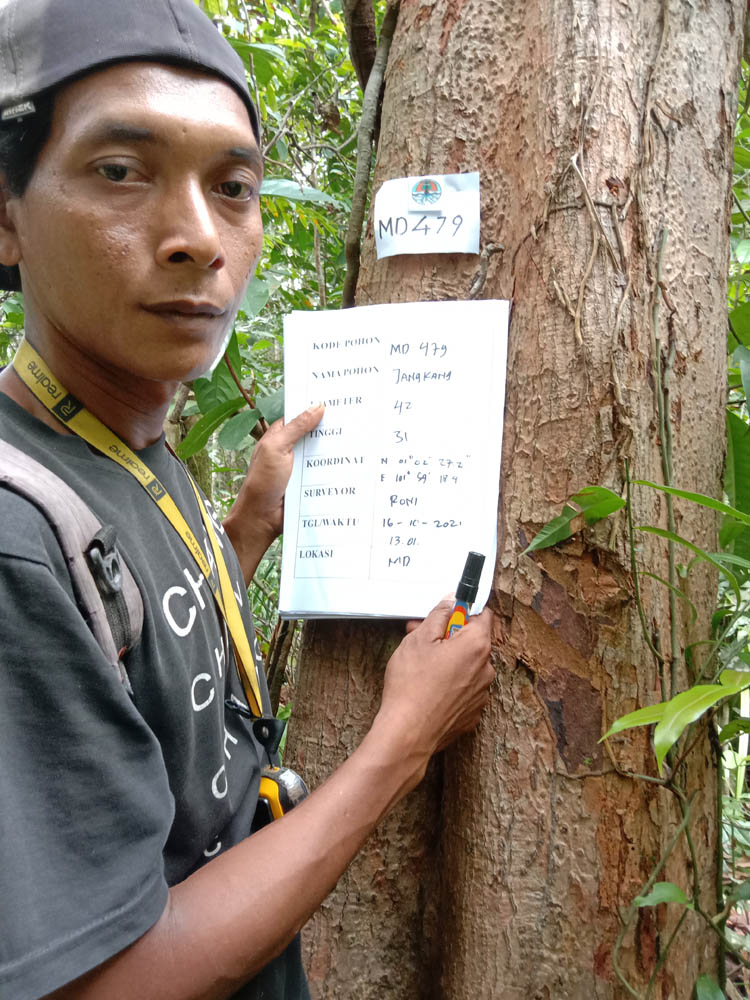 MD 479
KODE POHON MD 479
NAMA POHON JANGKANG
DIAMETER 42
TINGGI 31
KOORDINAT N 01° 02' 27.2"
E 101° 59' 18.4
SURVEYOR RONI
TGL/WAKTU 16-10-2021
13.01.
LOKASI MD
realme
realme
CH
CH
CH
C